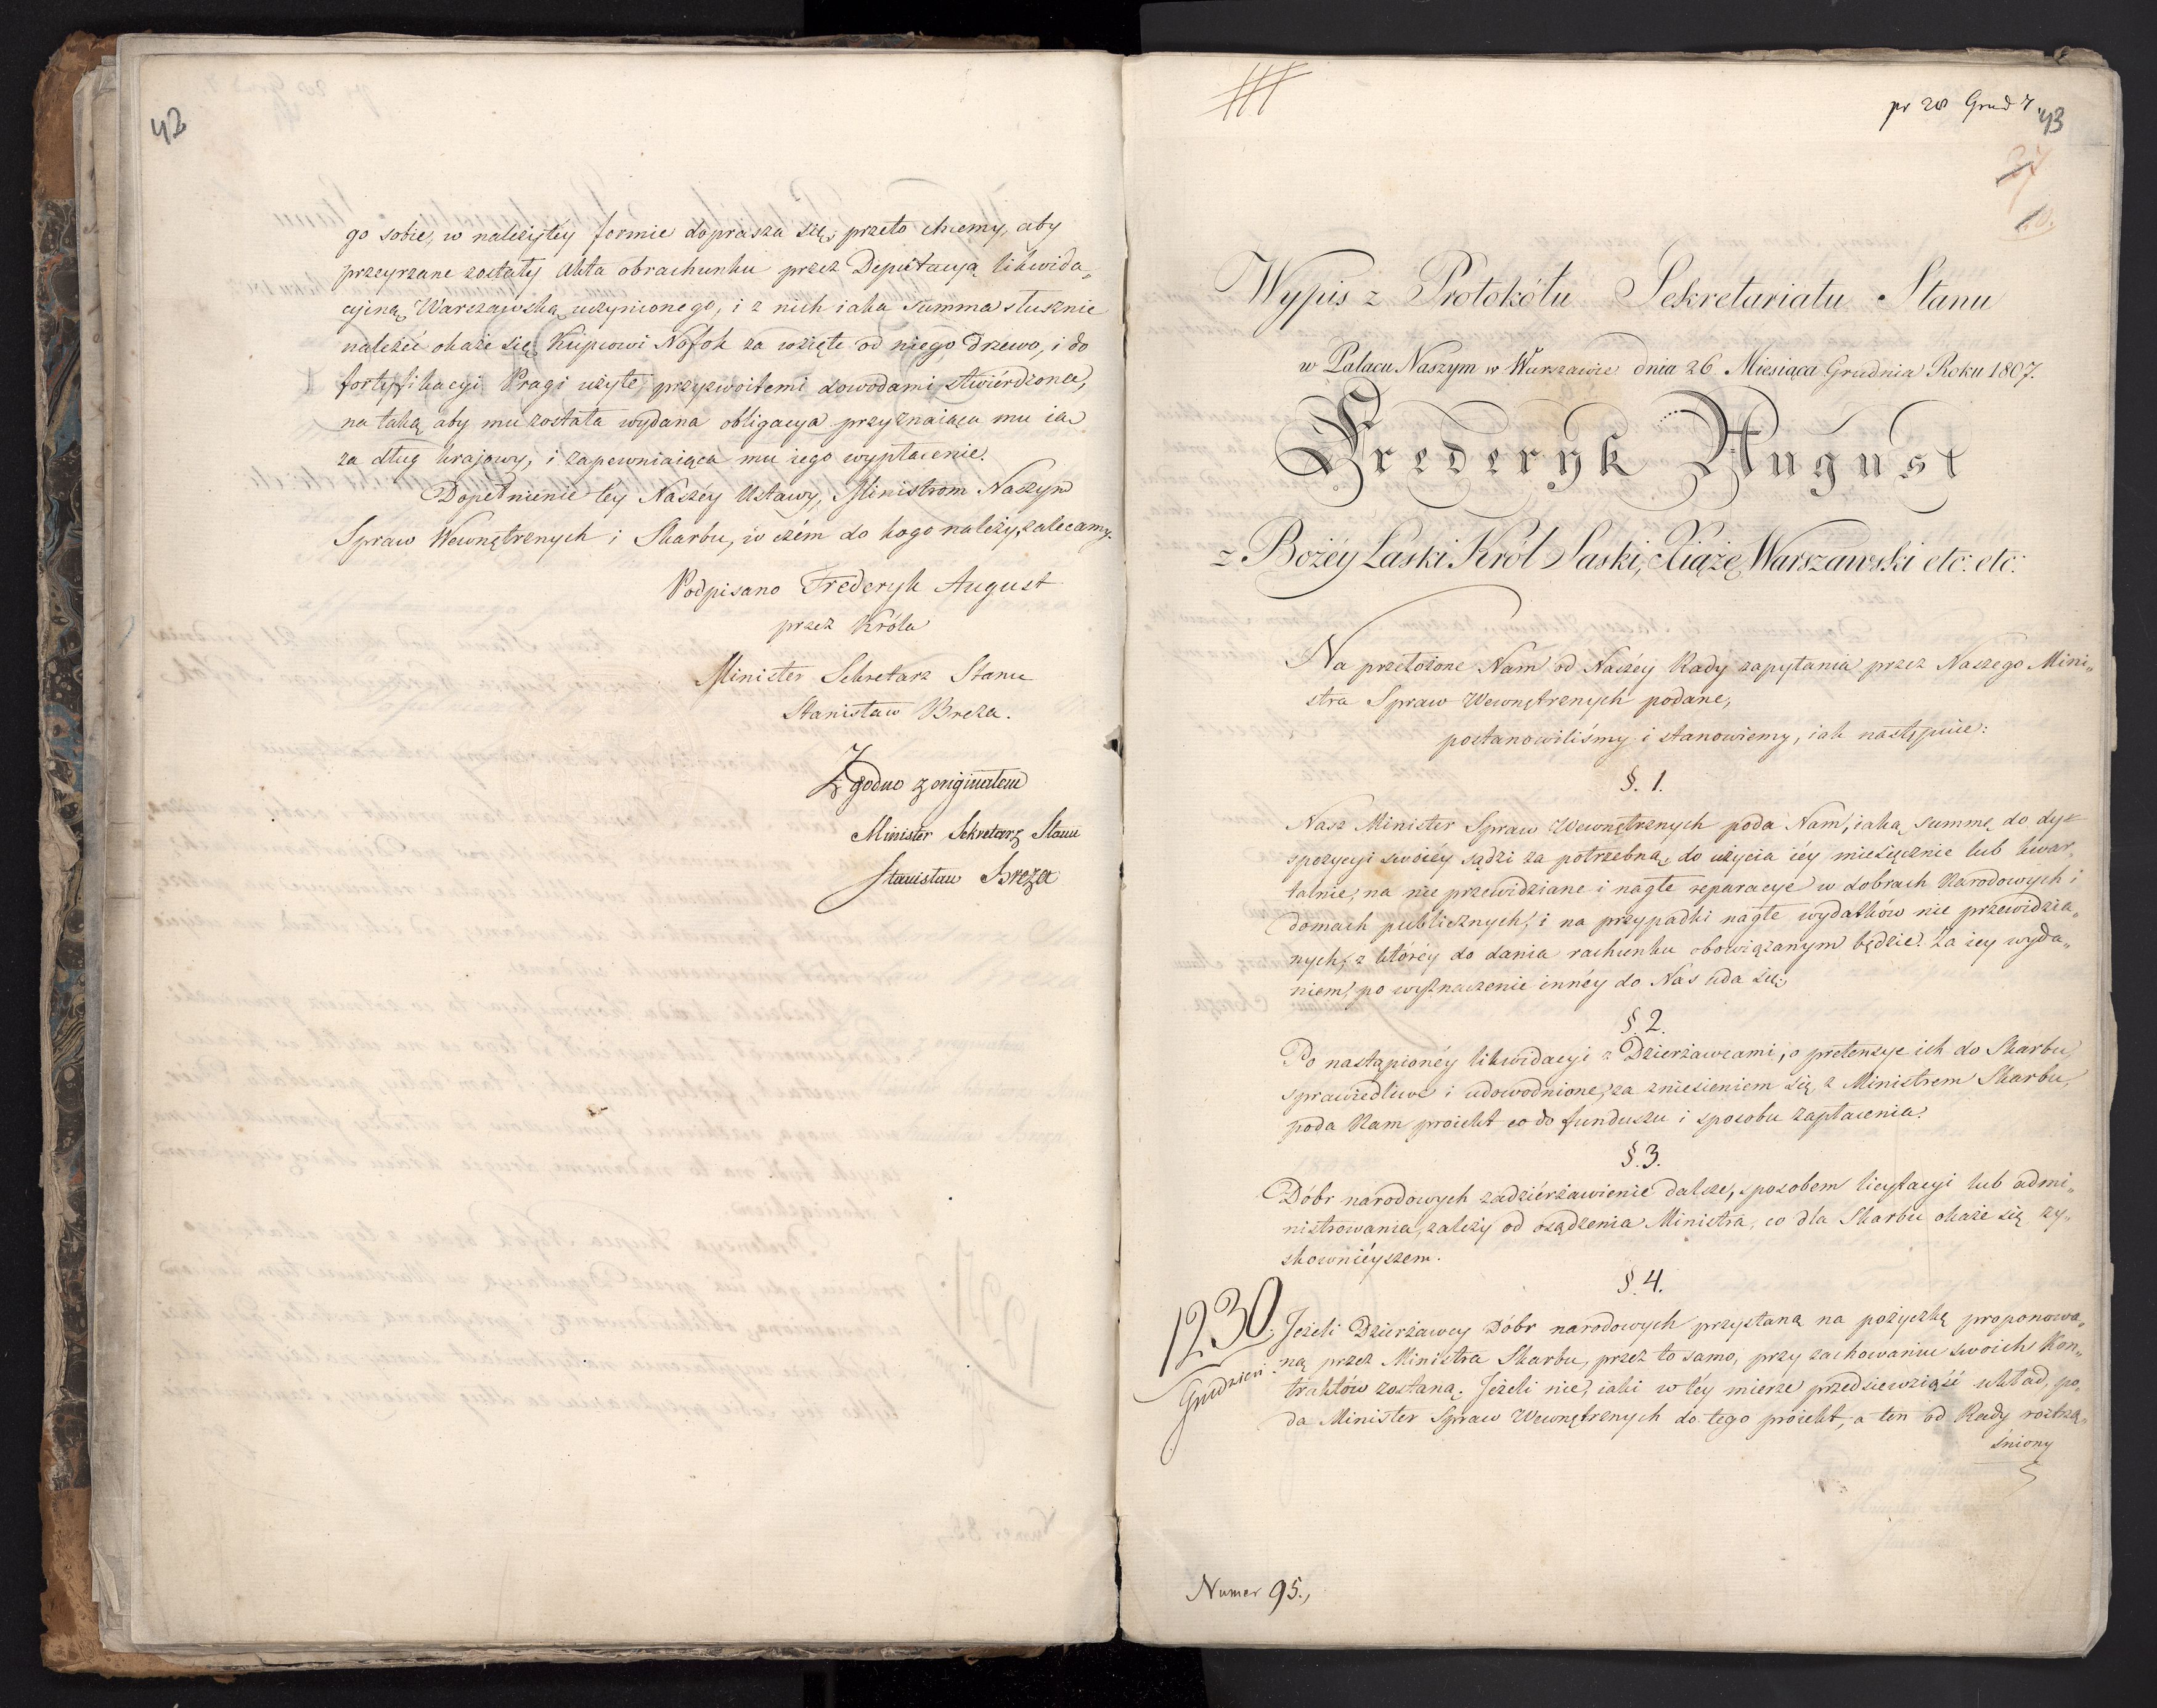 42
go sobie, w należytéy formie doprasza się; przeto chcemy, aby
przeyrzane zostały Akta obrachunku przez Deputacyą likwida„
cyiną Warszawską uczynionego, i z nich iaka Summa słusznie
należéć okaże się Kupcowi Nofok za wzięte od niego drzewo, i do
fortyfikacyi Pragi użyte, przyzwoitemi dowodami stwiérdzona,
na taką aby mu została wydana obligacya przyznaiąca mu ią
za dług krajowy, i zapewniaiąca mu iego wypłacenie.
Dopełnienie téy Naszéy Ustawy, Ministrom Naszym
Spraw Wewnętrznych i Skarbu, w czém do kogo należy, zalecamy.
Podpisano Frederyk August
przez Króla
Minister Sekretarz Stanu
Stanisław Breza.
Zgodno z originałem
Minister Sekretarz Stanu
Stanisław Breza
pr 28 Grud 7.
43
37
Wypis z Protokółu Sekretariatu Stanu
w Pałacu Naszym w Warszawie dnia 26 Miesiąca Grudnia Roku 1807.
Frederyk August
z Bożéy Łaski Król Saski, Xiążę Warszawski etc: etc:
Na przełożone Nam od Naszéy Rady zapytania przez Naszego Mini„
stra Spraw Wewnętrznych podane,
postanowiliśmy i stanowiemy, iak następuie:
§. 1.
Nasz Minister Spraw Wewnętrznych poda Nam, iaką summę do dy„
spozycyi swoiéy sądzi za potrzebną, do użycia iéy miesięcznie lub kwar„
talnie, na nie przewidziane i nagłe reparacye w dobrach Narodowych i
domach publicznych, i na przypadki nagłe wydatków nie przewidzia„
nych, z któréy do dania rachunku obowiązanym będzie. Za iey wyda„
niem, po wyznaczenie innéy do Nas uda się.
§. 2.
Po nastąpionéy likwidacyi z Dzierżawcami, o pretensye ich do Skarbu,
sprawiedliwe i udowodnione, za zniesieniem się z Ministrem Skarbu,
poda Nam proiekt co do funduszu i sposobu zapłacenia.
§. 3.
Dóbr narodowych zadziérżawienie dalsze, sposobem licytacyi lub admi„
nistrowania, zależy od osądzenia Ministra, co dla Skarbu okaże się zy„
skownieyszem.
§. 4.
1230
Grudzień
Jeżeli Dzierżawcy Dóbr narodowych przystaną na pożyczkę proponowa„
ną przez Ministra Skarbu, przez to samo, przy zachowaniu swoich Kon„
traktów zostaną. Jeżeli nie, iaki w téy mierze przedsiewziąść układ, po„
da Minister Spraw Wewnętrznych do tego proiekt, a ten od Rady roztrzą„
śniony
Numer 95.,